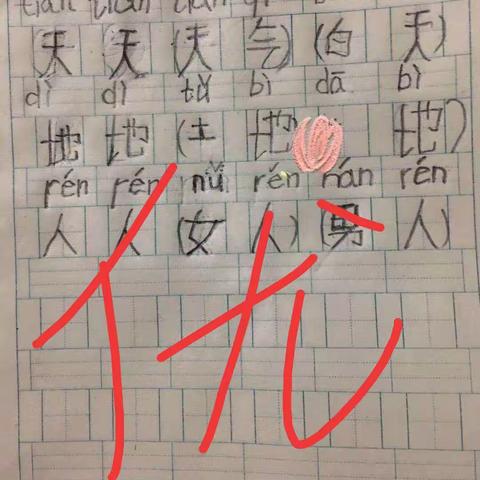 天 天 (天 气) (白 天)
dì dì tǔ bì dā bì
地 地 (土 地 地)
rén rén nǚ rén nán rén
人 人 (女 人) (男 人)
优